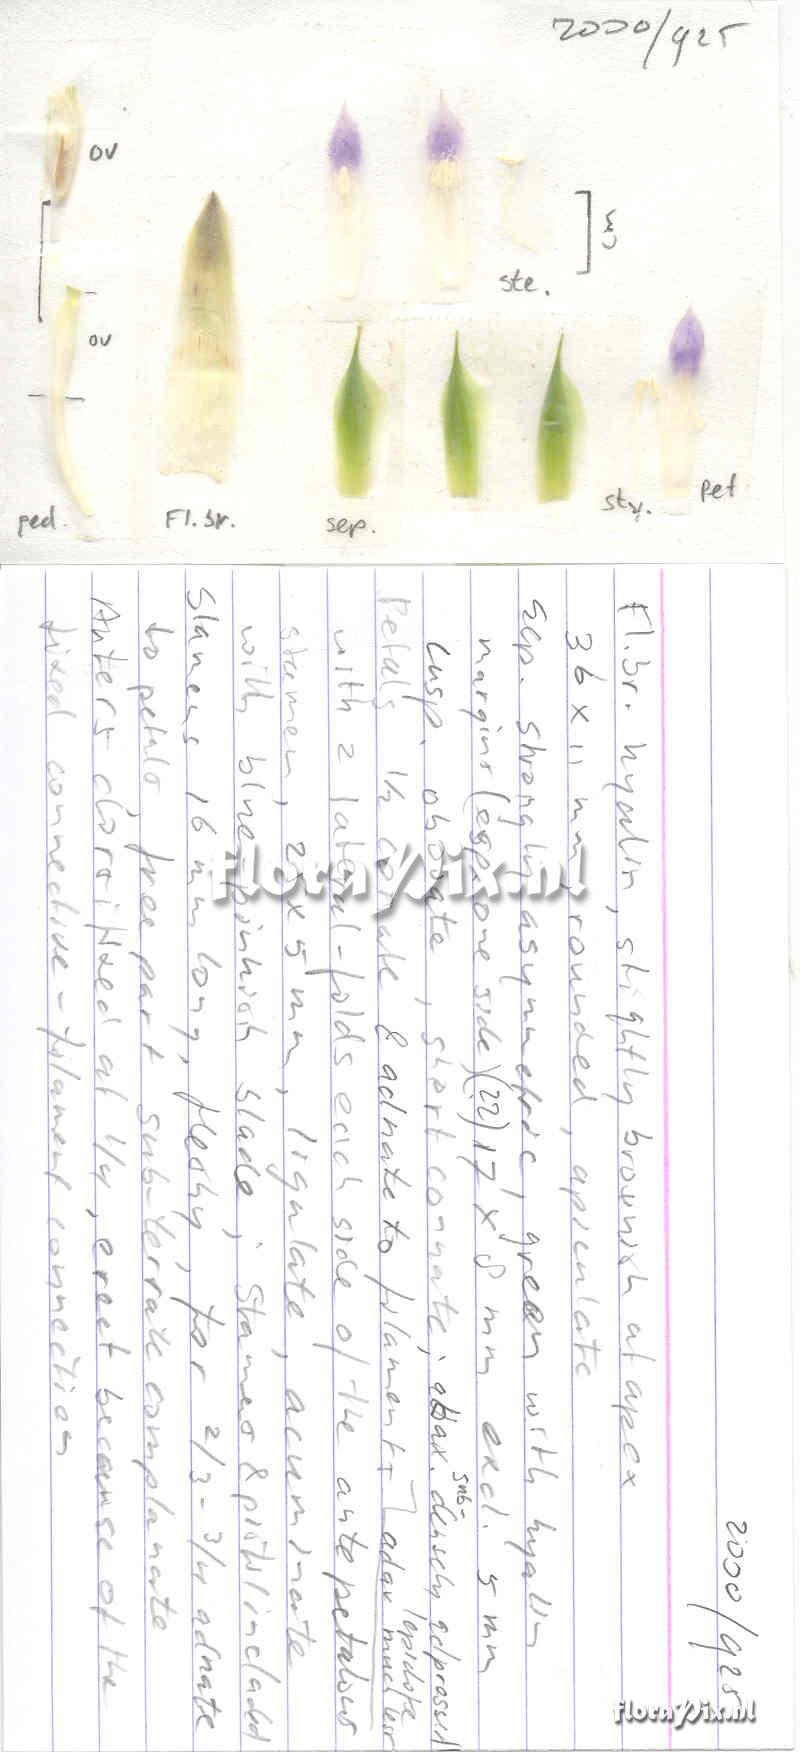 2000/925
ov
cm
ste.
ov
ped.
Fl.br.
sep.
sty.
pet
2000/925
Fl.br. hyalin, slightly brownish at apex
36 x 11 mm, rounded, apiculate
Sep. strongly asymmetric, green with hyalin
margins (esp. one side) (22) 17 x 8 mm excl. 5 mm
cusp. obovate, short connate, abax. sub-densely adpressed lepidote
Petals ½ connate & adnate to filament, adax much less
with 2 lateral-folds each side of the antepetalous
stamen, 25 x 5 mm, ligulate, acuminate
with blue pinkish blade; Stamens & pistil included
Stamens 16 mm long, fleshy, for 2/3 - 3/4 adnate
to petals, free part sub-terrate complanate
Anters dorsifixed at 1/4, erect because of the
fixed connective - filament connection
floraPix.nl
floraPix.nl